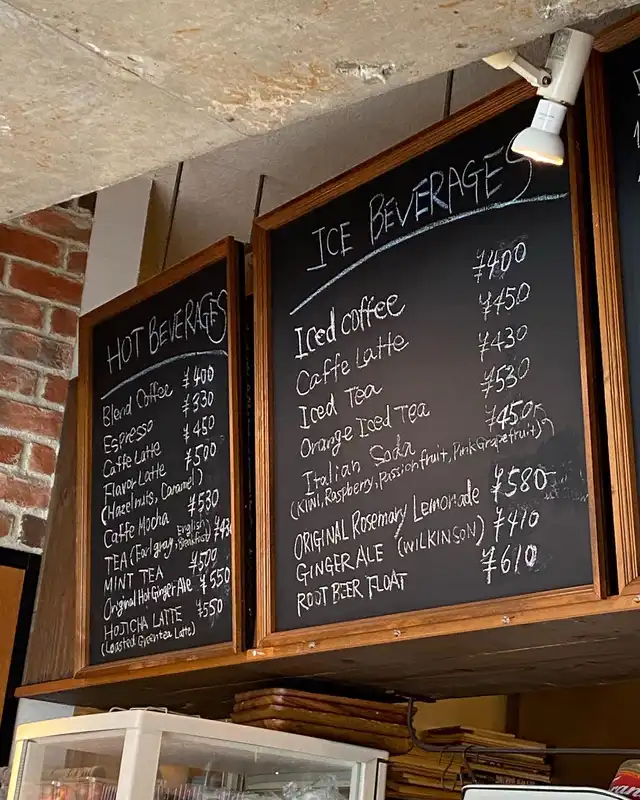 HOT BEVERAGES
Blend Coffee ¥400
Espresso ¥330
Caffe Latte ¥450
Flavor Latte ¥500
(Hazelnuts, Caramel)
Caffe Mocha ¥530
TEA (Earl gray, English Breakfast) ¥430
MINT TEA ¥500
Original Hot Ginger Ale ¥550
HOJICHA LATTE ¥550
(Loasted Green tea Latte)
ICE BEVERAGES
Iced coffee ¥400
Caffe Latte ¥450
Iced Tea ¥430
Orange Iced Tea ¥530
Italian Soda ¥450
(Kiwi, Raspberry, Passionfruit, Pink Grapefruit)
ORIGINAL Rosemary Lemonade ¥580
GINGER ALE (WILKINSON) ¥410
ROOT BEER FLOAT ¥610